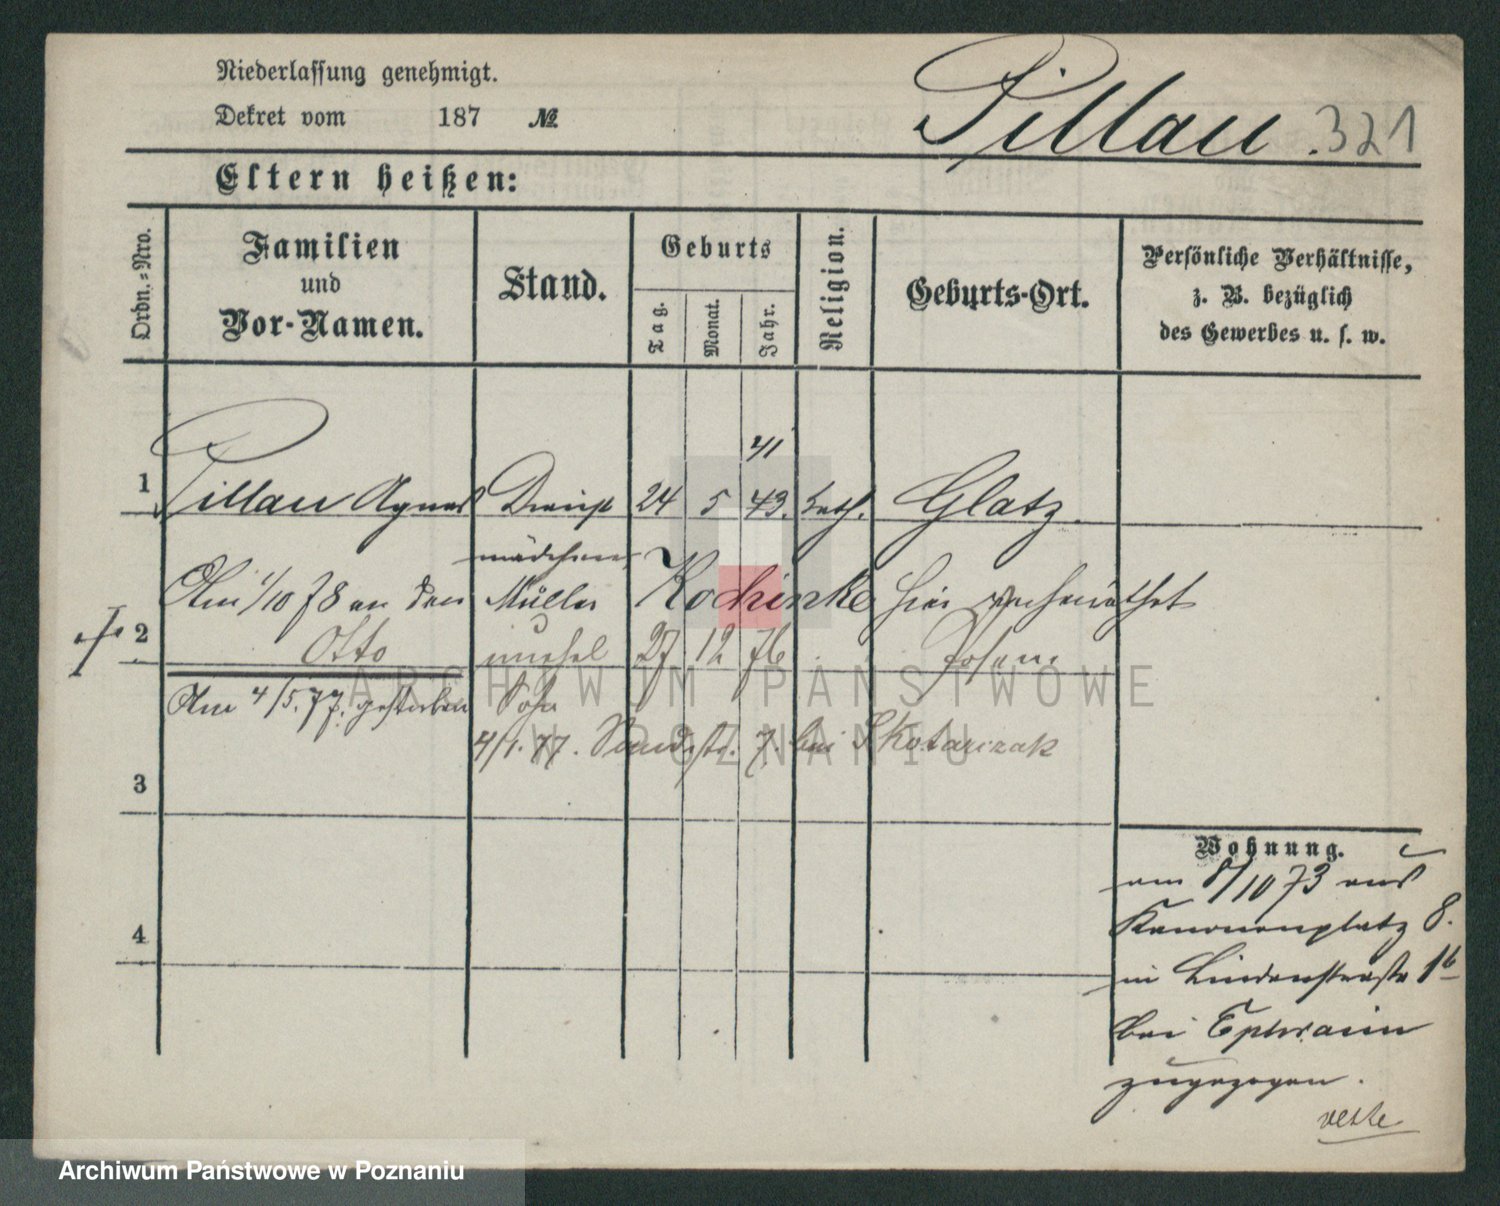 Niederlassung genehmigt.
Dekret vom 187 №
Pillau 321
Eltern heißen:
Ordn.-Nro.
Familien und Vor-Namen.
Stand.
Geburts
Tag.
Monat.
Jahr.
Religion.
Geburts-Ort.
Persönliche Verhältnisse,
z. B. bezüglich
des Gewerbes u. s. w.
41
1 Pillau Agnes Dienst 24 5 43. kath. Glatz.
mädchen
Am 1/10 78 an den Müller Kochinke hier verheirathet
2 Otto unehel 27 12 76 Posen
Am 4/5. 77. gestorben Sohn
4/1. 77. Sandstr. 7. bei Skotarczak
3
4
Wohnung.
am 8/10 73 aus
Kanonenplatz 8.
in Lindenstraße 1b
bei Ephraim
zugezogen.
ARCHIWUM PAŃSTWOWE
W POZNANIU
Archiwum Państwowe w Poznaniu